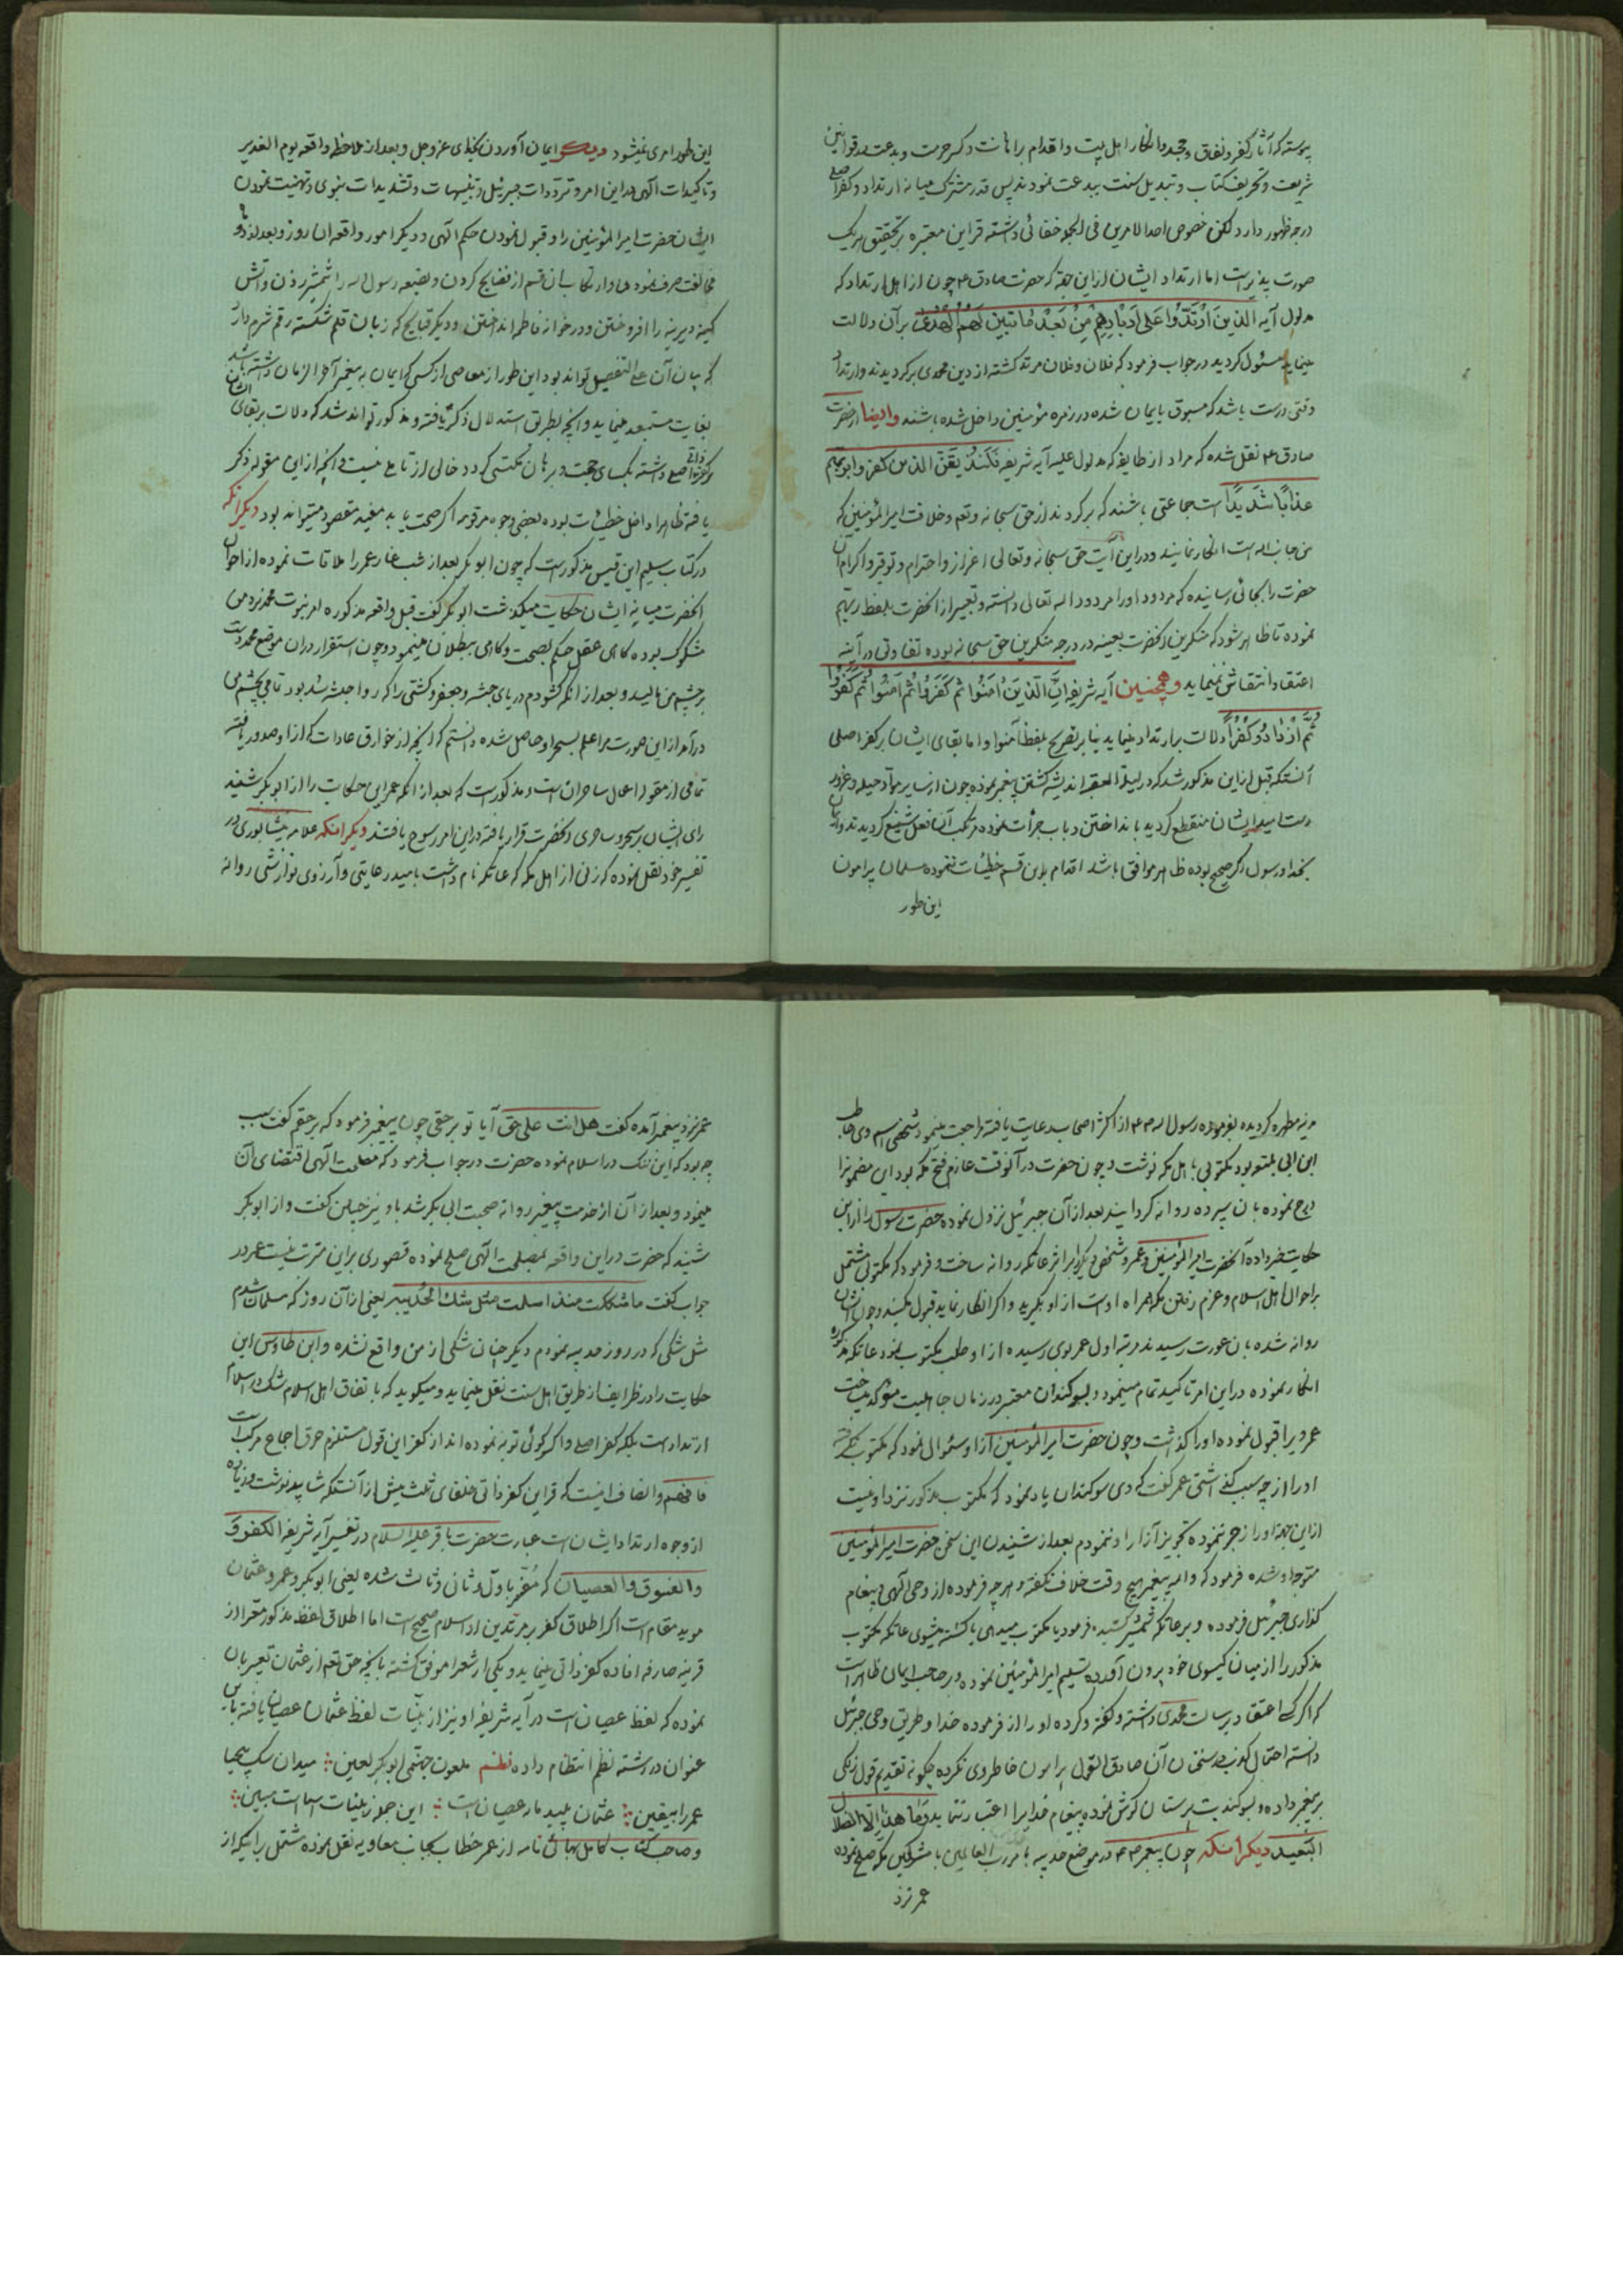 پیوسته که آثار کفر و نفاق و جحد و انکار اهل بیت و اقدام بر اهانت و کسر حرمت و بدعت در قوانین
شریعت و تحریف کتاب و تبدیل سنت ببدعت نمودند پس قدر مشترک میانه ارتداد و کفر اصلی
درجه ظهور دارد لکن خصوص احد الامرین فی الجمله خفائی داشته قراین معتبره بر تحقیق هر یک
صورت پذیر است اما ارتداد ایشان از این جهة که حضرت صادق ع چون از اهل ارتداد که
مدلول آیه الذین ارتدوا علی ادبارهم من بعد ما تبین لهم الهدی بر آن دلالت
مینماید مسئول کردید در جواب فرمود که فلان و فلان مرتد کشته از دین محمدی برکردیدند و ارتداد
وقتی درست باشد که مسبوق بایمان شده در زمره مؤمنین داخل شده باشند وایضا از حضرت
صادق ع نقل شده که مراد از طایفه که مدلول علیه آیه شریفه فلنذیقن الذین کفروا
عذابا شدیدا است جماعتی باشند که برکردند از حق سبحانه و تعالی و خلافت امیرالمؤمنین که
من جانب الله است انکار نمایند و در این آیت حق سبحانه و تعالی اعزاز و احترام و توقیر و اکرام آن
حضرت را بجائی رسانیده که مردود او را مردود الله تعالی دانسته و تعبیر از آنحضرت بلفظ ربهم
نموده تا ظاهر شود که منکرین آنحضرت بعینه در درجه منکرین حق سبحانه بوده تفاوتی در آیینه
اعتقاد انتقاش نمینماید وهمچنین آیه شریفه ان الذین امنوا ثم کفروا ثم امنوا ثم کفروا
ثم ازدادوا کفرا دلالت بر ارتداد مینماید بنا بر تصریح بلفظ آمنوا و اما بقای ایشان بر کفر اصلی
آنستکه قبل از این مذکور شد که در لیلة العقبه اندیشه کشتن پیغمبر نموده چون از سایر مواد حیله و غرور
دست امید ایشان منقطع کردید بانداختن دباب جرأت نموده مرتکب آن فعل شنیع کردیدند و ایمان
بخدا و رسول اگر صحیح بوده ظاهر موافق باشد اقدام باین قسم خطیئات ننموده مسلمان پیرامون
این طور
این طور امری نمیشود دیگر ایمان آوردن بخدای عز و جل و بعد از ملاحظه واقعه یوم الغدیر
و تاکیدات الهی در این امر و ترددات جبرئیل و تنبیهات و تشدیدات نبوی و تهنیت نمودن
ایشان حضرت امیرالمؤمنین را و قبول نمودن حکم الهی و دیگر امور واقعه آن روز و بعد از دو
مخالفت صرف نموده و ارتکاب بان قسم از فضایح کردن و بضعه رسول الله را شمشیر زدن و آتش
کینه دیرینه را افروختن و در خانه فاطمه انداختن و دیگر قبایح که زبان قلم شکسته رقم شرم دارد
که بیان آن علی التفصیل تواند بود این طور از معاصی از کسی که ایمان به پیغمبر آخر الزمان داشته باشد
بغایت مستبعد مینماید و آنچه بطریق استدلال ذکر یافته و مذکور تواند شد که دلالت بر بقای ایشان
بر کفر اصلی داشته بجای حجت و برهان تکسی کردد خالی از تامل نیست و آنچه از این مقوله ذکر
یافته ظاهرا داخل خطیئات بوده بعضی وجوه مرقومه اگر صحت یابد مفید مقصود میتواند بود دیگر آنکه
در کتاب سلیم ابن قیس مذکور است که چون ابوبکر بعد از شب غار عمر را ملاقات نموده از احوال
آنحضرت میانه ایشان حکایت میکذشت ابوبکر گفت قبل واقعه مذکوره امر نبوت محمد نزد من
مشکوک بوده گاهی عقل حکم بصحت و گاهی ببطلان مینمود و چون استقرار در آن موضع محمد دست
بر چشم من مالید و بعد از آنکه گشودم دریای حبشه و جعفر و کشتی را که روا حبشه شد بود تمامی بچشم من
درآمد از این صورت مرا علم بسحر او حاصل شده دانستم که آنچه از خوارق عادات که از او صدور یافته
تمامی از مقوله اعمال ساحران است و مذکور است که بعد از آنکه عمر این حکایت را از ابوبکر شنید
رای ایشان بر سحر و ساحری آنحضرت قرار یافته در این امر رسوخ یافتند دیگر آنکه علامه نیشابوری در
تفسیر خود نقل نموده که زنی از اهل مکه که عاتکه نام داشت بامید رعایتی و آرزوی نوازشی روانه
مدینه مطهره کردیده بفرموده رسول الله ص از اکثر اصحاب رعایت یافته مراجعت مینمود شخصی اسم وی حاطب
ابن ابی بلتعه بود مکتوبی باهل مکه نوشت و چون حضرت در آنوقت عازم فتح مکه بود این مضمونرا
درج نموده بان سپرده روانه کردانیدند بعد از آن جبرئیل نزول نموده حضرت رسول را از این
حکایت خبر داده آنحضرت امیرالمؤمنین و عمر و شخص دیگر را بر اثر عاتکه روانه ساخت و فرمود که مکتوبی مشتمل
بر احوال اهل اسلام و عزم رفتن مکه همراه اوست از او بگیرید و اگر انکار نماید قبول مکنید و چون ایشان
روانه شده بان عورت رسیدند مرتبه اول عمر بوی رسیده از او طلب مکتوب نمود عاتکه مذکوره
انکار نموده در این امر تاکید تمام مینمود و بسوکندان معتبر در زمان جاهلیت مؤکد میساخت
عمر ویرا قبول نموده او را گذاشت و چون حضرت امیرالمؤمنین از او سئوال نمود که مکتوب نگرفته
او را از چه سبب گذاشتی عمر گفت که وی سوکندان یاد نمود که مکتوب مذکور نزد او نیست
از این جهة او را زجر ننموده تجویز آزار او ننمودم بعد از شنیدن این سخن حضرت امیرالمؤمنین
متوجه او شده فرمود که والله پیغمبر هیچ وقت خلاف نگفته و هر چه فرموده از وحی الهی و پیغام
گذاری جبرئیل فرموده و بر عاتکه شمشیر کشیده فرمود یا مکتوب میدهی یا کشته میشوی عاتکه مکتوب
مذکور را از میان کیسوی خود بیرون آورده تسلیم امیرالمؤمنین نموده و بر صاحب ایمان ظاهر است
که اگر کسی اعتقاد برسالت محمدی داشته و گفته و کرده او را از فرموده خدا و طریق وحی جبرئیل
دانسته احتمال کذب در سخنان آن صادق القول پیرامون خاطر وی نکرده چگونه تقدیم قول زنکی
بر پیغمبر داده و بسوکند بت پرستان گوش نموده پیغام خدا را اعتبار ننماید و ما هذا الا الضلال
البعید دیگر آنکه چون پیغمبر ص در موضع حدیبیه بامر رب العالمین با مشرکین مکه صلح نموده
عمر نزد
عمر نزد پیغمبر آمده گفت هل انت علی حق آیا تو بر حقی چون پیغمبر فرمود که بر حقم گفت سبب
چه بود که این ننک در اسلام نموده حضرت در جواب فرمود که مصلحت الهی اقتضای آن
مینمود و بعد از آن از خدمت پیغمبر روانه صحبت ابی بکر شد باو نیز چنین گفت و از ابوبکر
شنید که حضرت در این واقعه بمصلحت الهی صلح نموده قصوری بر این مترتب نیست عمر در
جواب گفت ما شککت منذ اسلمت مثل شک الحدیبیه یعنی از آن روز که مسلمان شدم
مثل شکی که در روز حدیبیه نمودم دیگر چنان شکی از من واقع نشده و ابن طاوس این
حکایت را در ظرایف از طریق اهل سنت نقل مینماید و میکوید که باتفاق اهل اسلام شک در اسلام
ارتداد است بلکه کفر اصلی و اگر گوئی توبه نموده اند از کفر این قول مستلزم خرق اجماع مرکب است
فافهم و انصاف اینست که قراین کفر ذاتی خلفای ثلث بیش از آنستکه شاید نوشت و زیاده
از وجوه ارتداد ایشان است عبارت حضرت باقر علیه السلام در تفسیر آیه شریفه الکفر و
والفسوق والعصیان که مفسر باول و ثانی و ثالث شده یعنی ابوبکر و عمر و عثمان
موید مقام است اگر اطلاق کفر بر مرتدین از اسلام صحیح است اما اطلاق لفظ مذکور معرا از
قرینه صارفه افاده کفر ذاتی مینماید و یکی از شعرا موفق گشته بانچه حق تعالی از عثمان تعبیر بان
نموده که لفظ عصیان است در آیه شریفه او نیز از بینات لفظ عثمان عصیان یافته باین
عنوان در رشته نظم انتظام داده نظم ملعون جهنمی ابوبکر لعین ؞ میدان سک بیحیا
عمر را بیقین ؞ عثمان پلید مار عصیان است ؞ این جمله ز بینات اسما است مبین ؞
و صاحب کتاب کامل بهائی نامه از عمر خطاب بجانب معاویه نقل نموده مشتمل بر اینکه از